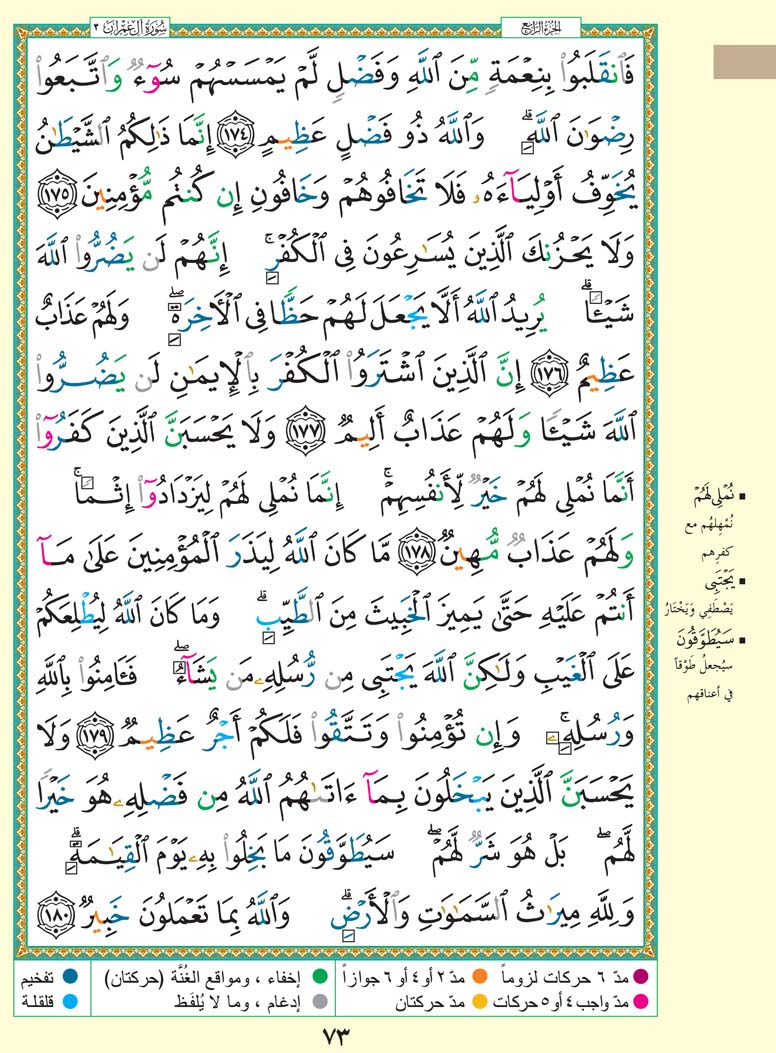 الجزء الرابع
سورة آل عمران ٣
فَٱنقَلَبُوا۟ بِنِعْمَةٍ مِّنَ ٱللَّهِ وَفَضْلٍ لَّمْ يَمْسَسْهُمْ سُوٓءٌ وَٱتَّبَعُوا۟
رِضْوَٰنَ ٱللَّهِ ۗ وَٱللَّهُ ذُو فَضْلٍ عَظِيمٍ ١٧٤ إِنَّمَا ذَٰلِكُمُ ٱلشَّيْطَٰنُ
يُخَوِّفُ أَوْلِيَآءَهُۥ فَلَا تَخَافُوهُمْ وَخَافُونِ إِن كُنتُم مُّؤْمِنِينَ ١٧٥
وَلَا يَحْزُنكَ ٱلَّذِينَ يُسَٰرِعُونَ فِى ٱلْكُفْرِ ۚ إِنَّهُمْ لَن يَضُرُّوا۟ ٱللَّهَ
شَيْـًٔا ۗ يُرِيدُ ٱللَّهُ أَلَّا يَجْعَلَ لَهُمْ حَظًّا فِى ٱلْـَٔاخِرَةِ ۖ وَلَهُمْ عَذَابٌ
عَظِيمٌ ١٧٦ إِنَّ ٱلَّذِينَ ٱشْتَرَوُا۟ ٱلْكُفْرَ بِٱلْإِيمَٰنِ لَن يَضُرُّوا۟
ٱللَّهَ شَيْـًٔا وَلَهُمْ عَذَابٌ أَلِيمٌ ١٧٧ وَلَا يَحْسَبَنَّ ٱلَّذِينَ كَفَرُوٓا۟
أَنَّمَا نُمْلِى لَهُمْ خَيْرٌ لِّأَنفُسِهِمْ ۚ إِنَّمَا نُمْلِى لَهُمْ لِيَزْدَادُوٓا۟ إِثْمًا ۚ
وَلَهُمْ عَذَابٌ مُّهِينٌ ١٧٨ مَّا كَانَ ٱللَّهُ لِيَذَرَ ٱلْمُؤْمِنِينَ عَلَىٰ مَآ
أَنتُمْ عَلَيْهِ حَتَّىٰ يَمِيزَ ٱلْخَبِيثَ مِنَ ٱلطَّيِّبِ ۗ وَمَا كَانَ ٱللَّهُ لِيُطْلِعَكُمْ
عَلَى ٱلْغَيْبِ وَلَٰكِنَّ ٱللَّهَ يَجْتَبِى مِن رُّسُلِهِۦ مَن يَشَآءُ ۖ فَـَٔامِنُوا۟ بِٱللَّهِ
وَرُسُلِهِۦ ۚ وَإِن تُؤْمِنُوا۟ وَتَتَّقُوا۟ فَلَكُمْ أَجْرٌ عَظِيمٌ ١٧٩ وَلَا
يَحْسَبَنَّ ٱلَّذِينَ يَبْخَلُونَ بِمَآ ءَاتَىٰهُمُ ٱللَّهُ مِن فَضْلِهِۦ هُوَ خَيْرًا
لَّهُم ۖ بَلْ هُوَ شَرٌّ لَّهُمْ ۖ سَيُطَوَّقُونَ مَا بَخِلُوا۟ بِهِۦ يَوْمَ ٱلْقِيَٰمَةِ ۗ
وَلِلَّهِ مِيرَٰثُ ٱلسَّمَٰوَٰتِ وَٱلْأَرْضِ ۗ وَٱللَّهُ بِمَا تَعْمَلُونَ خَبِيرٌ ١٨٠
▪ نُمْلِى لَهُمْ
نُمْهِلُهُم مع
كفرهم
▪ يَجْتَبِى
يَصْطَفِي وَيَخْتَارُ
▪ سَيُطَوَّقُونَ
سيُجعلُ طَوْقاً
في أعناقهم
مدّ ٦ حركات لزوماً ● مدّ ٢ أو ٤ أو ٦ جوازاً ● إخفاء ، ومواقع الغُنَّة (حركتان) ● تفخيم
● مدّ واجب ٤ أو ٥ حركات ● مدّ حركتان ● إدغام ، وما لا يُلفَظ ● قلقلة
٧٣